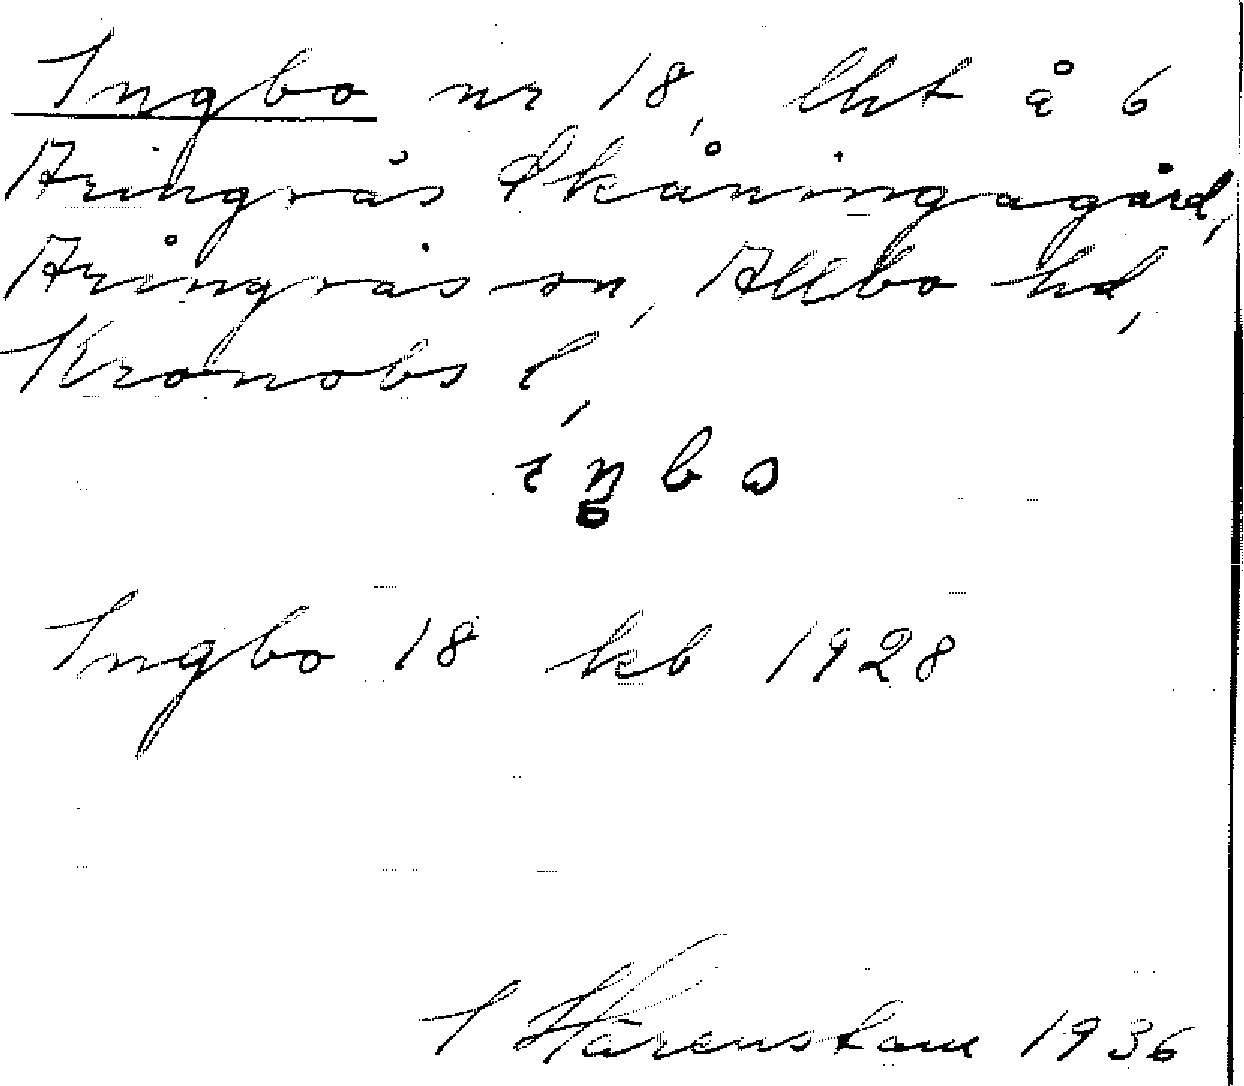 Ingbo nr 18, lht å 6
Aringsås Skåningagård,
Aringsås sn, Allbo hd,
Kronobs l,
i ŋ b o
Ingbo 18 kb 1928
I Härenstam 1936